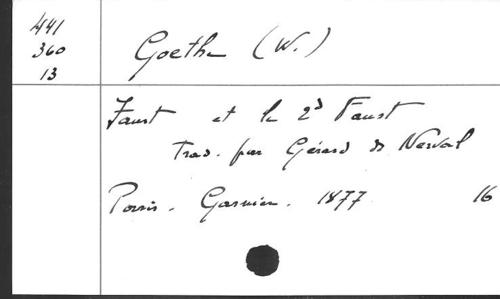 441
360
13
Goethe (W.)
Faust et le 2d Faust
Trad. par Gérard de Nerval
Paris. Garnier. 1877 16